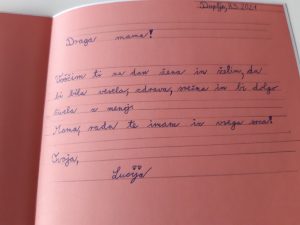 Duplje, 8.3.2021
Draga mama!
Voščim ti za dan žena in želim, da
bi bila vesela, zdrava, srečna in bi dolgo
živela z menoj.
Mama, rada te imam iz vsega srca!
Tvoja,
Lucija